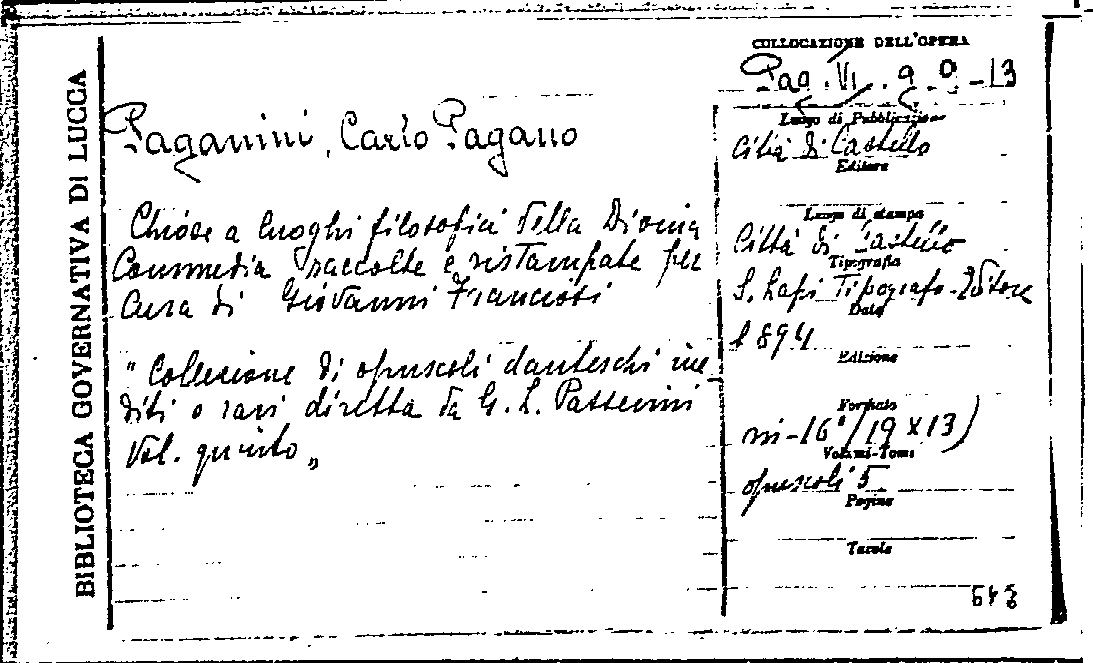 BIBLIOTECA GOVERNATIVA DI LUCCA
Paganini, Carlo Pagano
Chiose a luoghi filosofici della Divina
Commedia raccolte e ristampate per
cura di Giovanni Franciosi
" Collezione di opuscoli danteschi ine
diti o rari diretta da G. L. Passerini
Vol. quinto „
COLLOCAZIONE DELL'OPERA
Pag. VI. 9 9 -13
Luogo di Pubblicazione
Città di Castello
Editore
Luogo di stampa
Città di Castello
Tipografia
S. Lapi Tipografo-Editore
Data
1894
Edizione
Formato
in-16° (19 x 13)
Volumi-Tomi
opuscoli 5
Pagine
Tavole